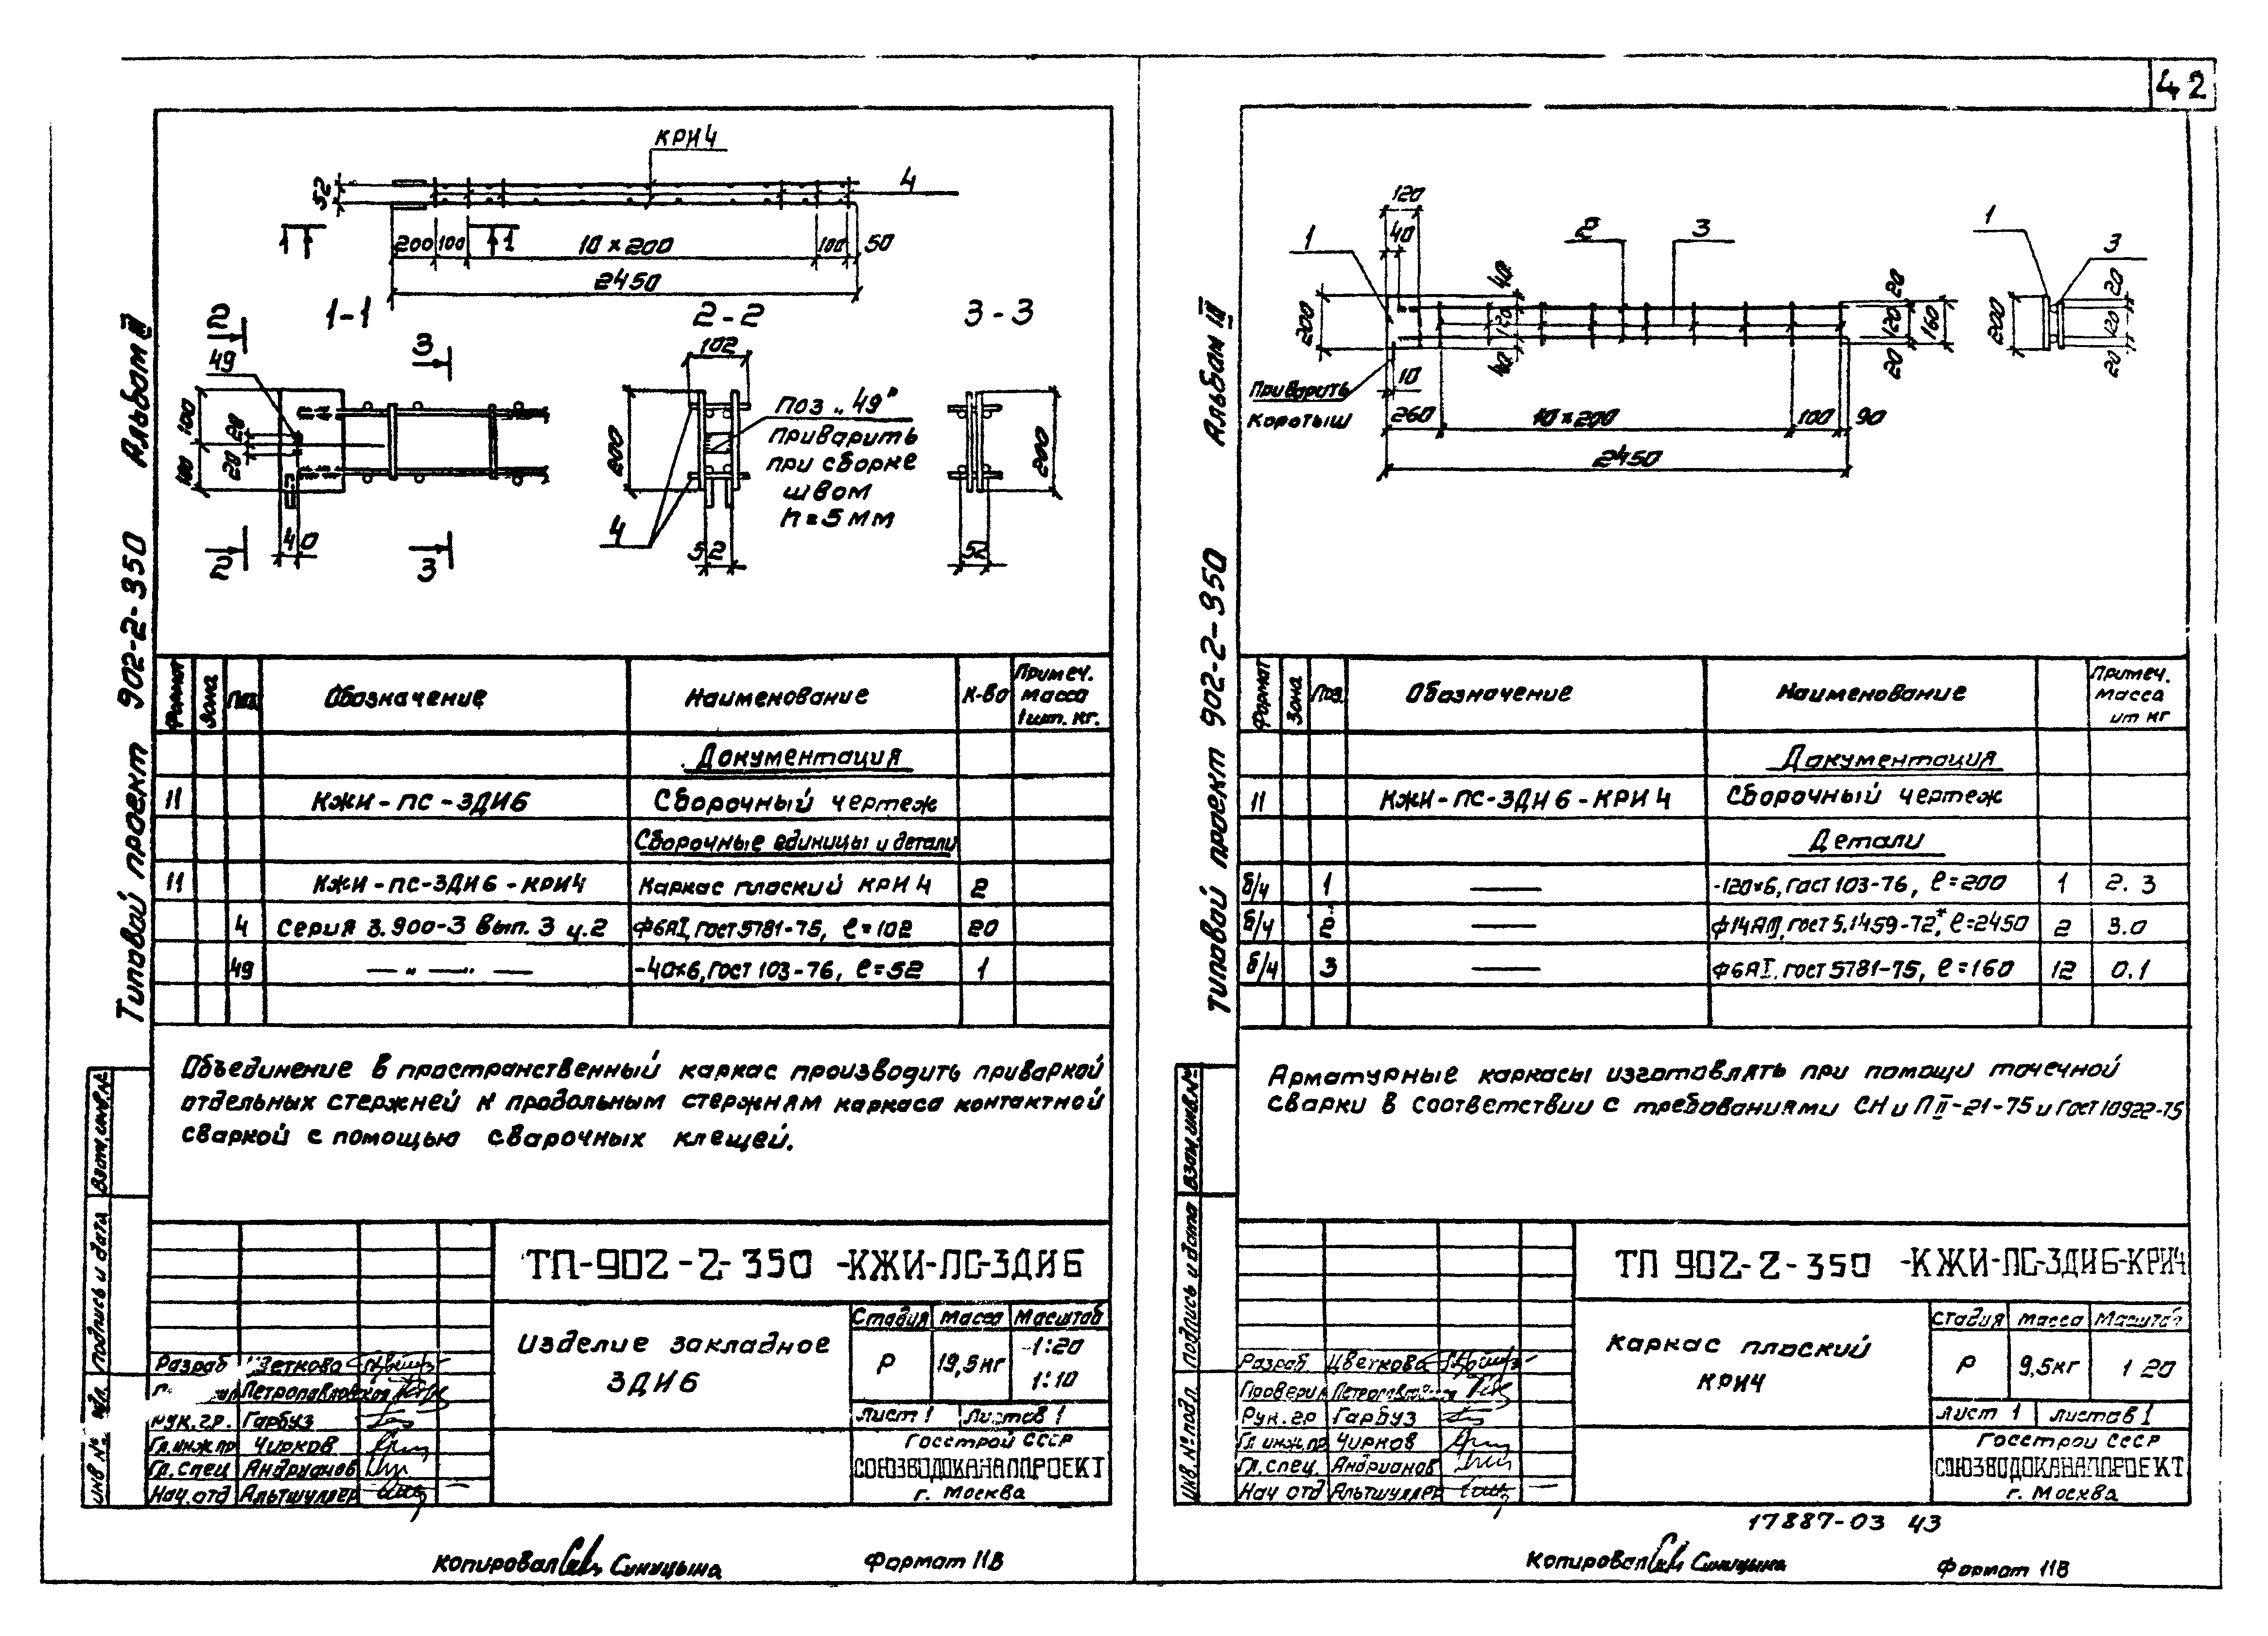 42
Типовой проект 902-2-350 Альбом III
КРИ4
4
52
200 100 1 1 10×200 100 50
2450
1-1 2-2 3-3
2
49
3
100
100
20
20
40
2
3
102
200
Поз „49"
приварить
при сборке
швом
h=5мм
4
52
200
52
Формат Зона Поз. Обозначение Наименование К-во Примеч. масса 1шт. кг.
Документация
11 КЖИ-ПС-3ДИ6 Сборочный чертеж
Сборочные единицы и детали
11 КЖИ-ПС-3ДИ6-КРИ4 Каркас плоский КРИ4 2
4 Серия 3.900-3 вып. 3 ч.2 Ф6АI, гост 5781-75, ℓ=102 20
49 — „ — „ — -40×6, гост 103-76, ℓ=52 1
Объединение в пространственный каркас производить приваркой
отдельных стержней к продольным стержням каркаса контактной
сваркой с помощью сварочных клещей.
Взам. инв. №
Подпись и дата
инв №
ТП-902-2-350 -КЖИ-ПС-3ДИ6
Изделие закладное
3ДИ6
Стадия Масса Масштаб
Р 19,5кг 1:20
1:10
Лист 1 Листов 1
Госстрой СССР
СОЮЗВОДОКАНАЛПРОЕКТ
г. Москва
Разраб Цветкова
Петропавловская
рук.гр. Гарбуз
Гл.инж.пр Чирков
Гл.спец Андрианов
Нач.отд Альтшуллер
Копировал Синицына Формат 11В
Типовой проект 902-2-350 Альбом III
120
1 40 2 3
200
40
120
40
20
120
20
160
Приварить
коротыш
10
260 10×200 100 90
2450
1
3
200
20
120
20
Формат Зона Поз. Обозначение Наименование Примеч. масса шт кг
Документация
11 КЖИ-ПС-3ДИ6-КРИ4 Сборочный чертеж
Детали
б/ч 1 — -120×6, гост 103-76, ℓ=200 1 2.3
б/ч 2 — ф14АIII, гост 5.1459-72*, ℓ=2450 2 3.0
б/ч 3 — Ф6АI, гост 5781-75, ℓ=160 12 0.1
Арматурные каркасы изготовлять при помощи точечной
сварки в соответствии с требованиями СН и П II-21-75 и Гост 10922-75
Взам. инв. №
Подпись и дата
Инв. № подл.
ТП 902-2-350 -КЖИ-ПС-3ДИ6-КРИ4
Каркас плоский
КРИ4
Стадия Масса Масштаб
Р 9,5кг 1 20
Лист 1 Листов 1
Госстрой СССР
СОЮЗВОДОКАНАЛПРОЕКТ
г. Москва
Разраб Цветкова
Проверил Петропавловская
Рук.гр Гарбуз
Гл инж.пр Чирков
Гл.спец. Андрианов
Нач отд Альтшуллер
17887-03 43
Копировал Синицына Формат 11В